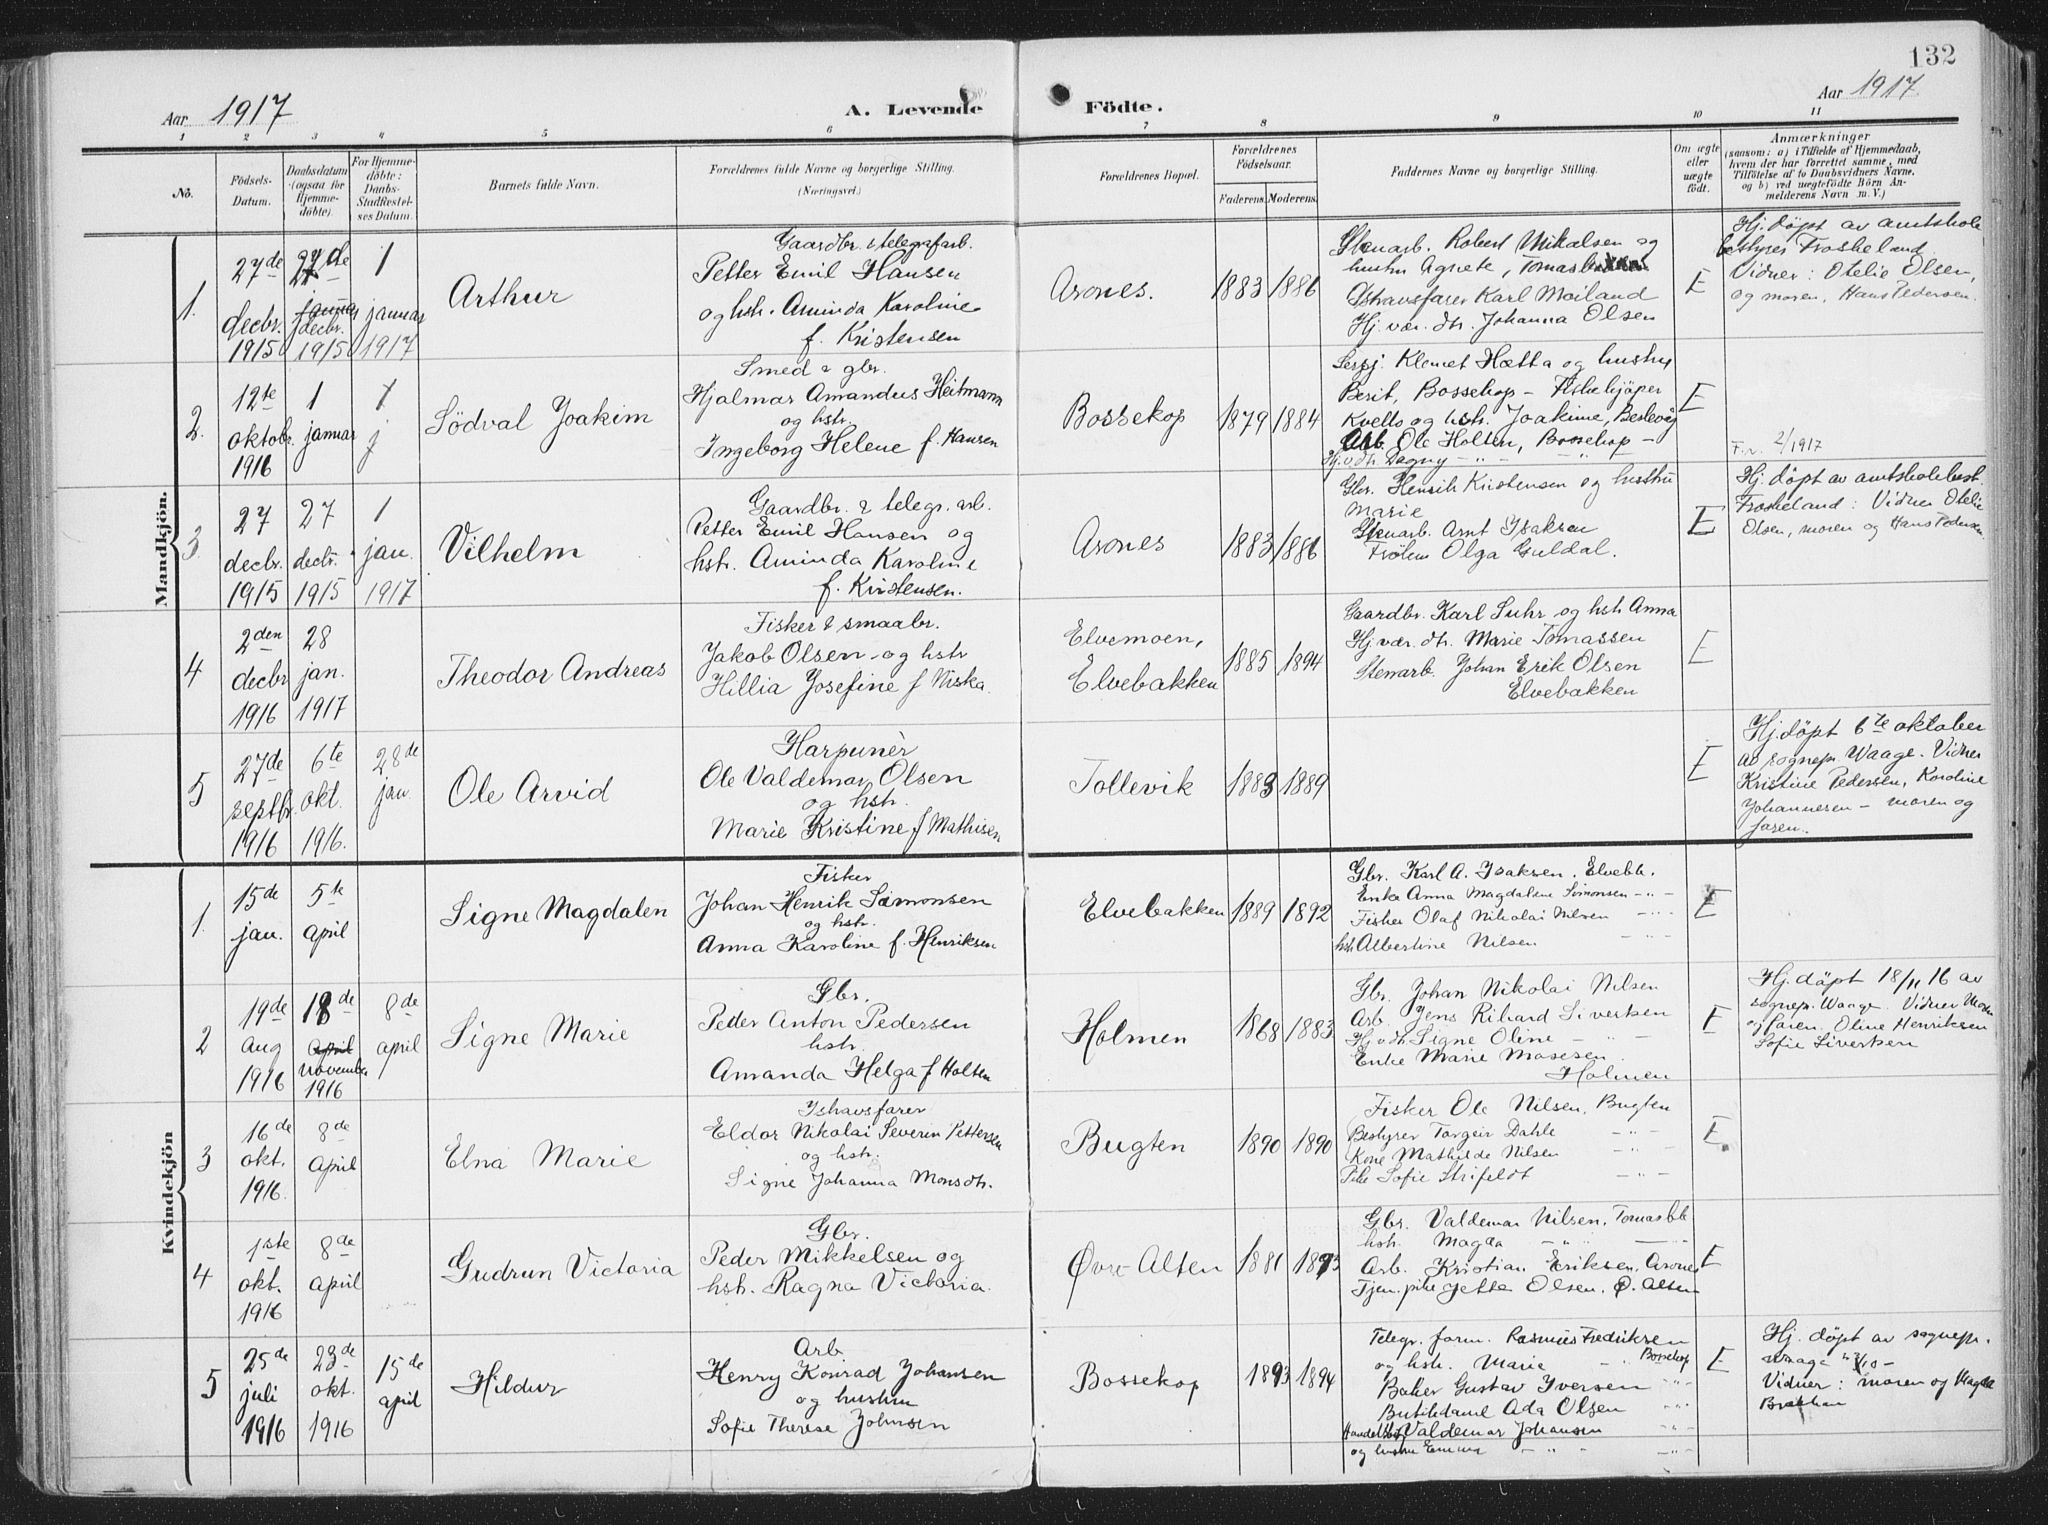 132
Aar 1917
A. Levende Födte.
Aar 1917
1 2 3 4 5 6 7 8 9 10 11
No.
Födsels-Datum.
Daabsdatum (ogsaa for Hjemmedöbte).
For Hjemmedöbte: Daabs-Stadfestelses Datum.
Barnets fulde Navn.
Forældrenes fulde Navne og borgerlige Stilling.
(Næringsvei.)
Forældrenes Bopæl.
Forældrenes Födselsaar.
Faderens. Moderens.
Faddernes Navne og borgerlige Stilling.
Om ægte eller uægte födt.
Anmærkninger
(saasom: a) i Tilfælde af Hjemmedaab, hvem der har forrettet samme, med Tilföielse af to Daabsvidners Navne, og b) ved uægtefödte Börn Anmelderens Navn m. V.)
Mandkjön.
1.
27de decbr. 1915
27de decbr. 1915
1 januar 1917
Arthur
Gaardbr. & telegrafarb.
Petter Emil Hansen
og hst. Aminda Karoline
f. Kristensen
Arones.
1883 1886
Stenarb. Robert Mikalsen og
hustru Agnete,
Ishavsfarer Karl Moiland
Hj. vær. dtr. Johanna Olsen
E
Hj. døpt av amtsskole
bestyrer Froskeland
Vidner: Otelie Olsen,
og moren, Hans Pedersen.
2.
12te oktobr. 1916
1 januar
1 j
Södval Joakim
Smed & gbr.
Hjalmar Amandus Heitmann
og hstr.
Ingeborg Helene f. Hansen
Bossekop
1879 1884
Klemet Hætta og hustru
Berit, Bossekop – Fiskekjöper
og hstr. Joakime,
Arb. Ole Holten, Bossekop –
Hj.v.dtr. Dagny – " – – " –
E
F.v. 2/1917
3.
27 decbr. 1915
27 decbr. 1915
1 jan. 1917
Vilhelm
Gaardbr. & telegr. arb.
Petter Emil Hansen og
hstr. Aminda Karoline
f. Kristensen.
Arones
1883 1886
Gbr. Henrik Kristensen og hustru
Marie
Stenarb. Arnt Isaksen
Frøken Olga Guldal.
E
Hj. døpt av amtsskolebest.
Froskeland: Vidner Otelie
Olsen, moren og Hans Pedersen
4
2den decbr 1916
28 jan. 1917
Theodor Andreas
Fisker & smaabr.
Jakob Olsen og hstr
Hillia Josefine f Niska.
Elvemoen,
Elvebakken
1885 1894
Gaardbr. Karl Suhr og hstr Anna
Hj. vær. dtr. Marie Tomassen
Stenarb. Johan Erik Olsen
Elvebakken
E
5
27de septbr. 1916
6te okt. 1916.
28de jan.
Ole Arvid
Harpunèr
Ole Valdemar Olsen
og hstr.
Marie Kristine f Mathisen
Tollevik
1883 1889
E
Hj. døpt 6te oktober
av sognepr. Waage. Vidner
Kristine Pedersen, Karoline
Johannesen – moren og
faren.
Kvindekjön
1.
15de jan.
5te april
Signe Magdalen
Fisker
Johan Henrik Simonsen
og hstr.
Anna Karoline f. Henriksen
Elvebakken
1889 1892
Gbr. Karl A. Isaksen, Elvebk.
Enke Anna Magdalene Simonsen – " –
Fisker Olaf Nikolai Nilsen – " –
hstr Albertine Nilsen
E
2
19de aug 1916
18de april november 1916
8de april
Signe Marie
Gbr.
Peder Anton Pedersen
hstr.
Amanda Helga f Holten
Holmen
1868 1883
Gbr. Johan Nikolai Nilsen
Arb. Jens Rikard Sivertsen
Hj v dtr Signe Oline – " –
Enke Marie Mosesen.
Holmen
E
Hj. døpt 18/11 16 av
sognepr. Waage. Vidner Moren
og faren. Oline Henriksen
Sofie Sivertsen
3
16de okt. 1916.
8de april
Elna Marie
Ishavsfarer
Eldor Nikolai Severin Pettersen
og hstr.
Signe Johanna Monsdtr.
Bugten
1890 1890
Fisker Ole Nilsen, Bugten
Bestyrer Torgeir Dahle – " –
Kone Mathilde Nilsen – " –
Pike Sofie Strifeldt – " –
E
4
1ste okt. 1916
8de april
Gudrun Victoria
Gbr.
Peder Mikkelsen og
hstr. Ragna Victoria.
Övre Alten
1881
Gbr. Valdemar Nilsen, Tomasbk
hstr. Magda – " –
Arb. Kristian Eriksen, Arones
Tjen. pike Jette Olsen, Ö. Alten
E
5
25de juli 1916
23de okt. 1916
15de april
Hildur
Arb
Henry Konrad Johansen
og hustru
Sofie Therese Johnsen
Bossekop
1893 1894
Telegr. form. Rasmus Fredriksen
og hstr. Marie – " Bossekop
Baker Gustav Iversen – " –
Butikdame Ada Olsen – " –
Valdemar Johansen – " –
og hustru Emma – " –
E
Hj. døpt av sognepr.
Waage 23/10 –
Vidner: moren og Magda